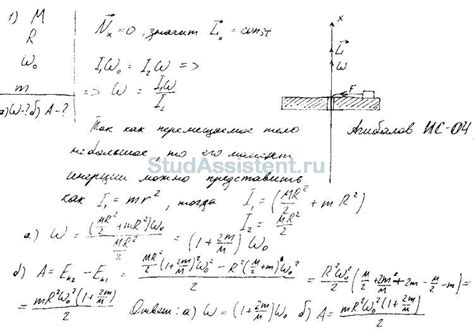 1) M
R
ω₀
m
а) ω-? б) A-?
N⃗ₓ = 0, значит L⃗ₓ = const
I₁ω₀ = I₂ω =>
=> ω = I₁ω/I₂
x
L⃗
ω
F
Агибалов ИС-04
Так как перемещаемое тело
небольшое, то его момент
StudAssistent.ru
инерции можно представить
как I₁ = mr², тогда I₁ = (MR²/2 + mR²)
I₂ = MR²/2
а) ω = (MR²/2 + mR²)ω₀ / (MR²/2) = (1 + 2m/M) ω₀
б) A = Eк₂ - Eк₁ = (MR²/2 (1 + 2m/M)² ω₀² - R²(M/2 + m)ω₀²)/2 = R²ω₀²(M/2 + 2m + 2m²/M - M/2 - m)/2 =
= mR²ω₀²(1 + 2m/M)/2 Ответ: а) ω = (1 + 2m/M)ω₀ б) A = mR²ω₀²(1 + 2m/M)/2